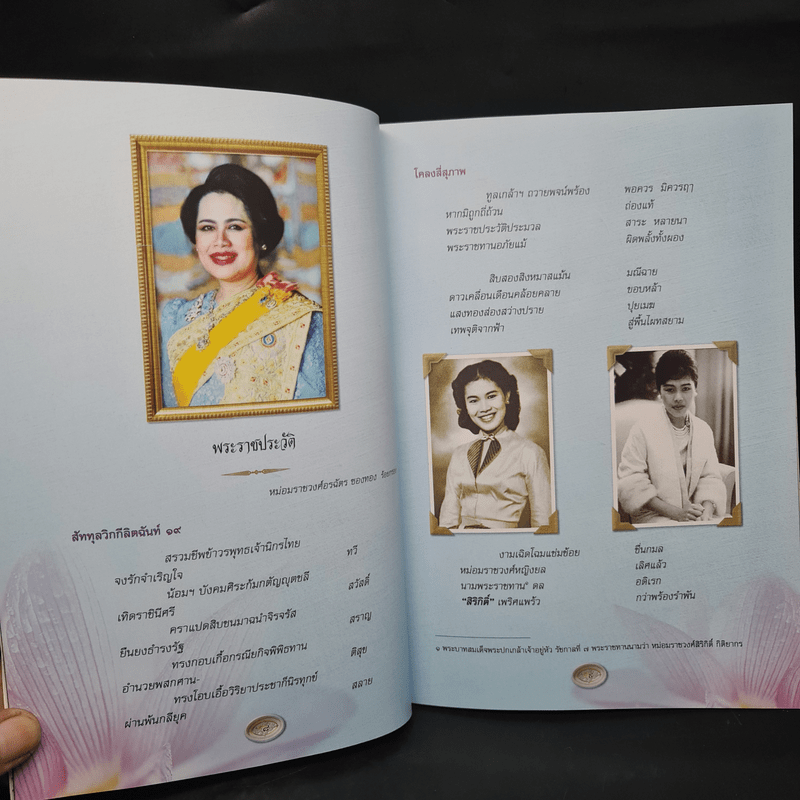 พระราชประวัติ
หม่อมราชวงศ์อรฉัตร ซองทอง
สัททุลวิกกีลิตฉันท์ ๑๙
สรวมชีพข้าวรพุทธเจ้านิกรไทย ทวี
จงรักจำเริญใจ
น้อมฯ บังคมศิระกัมกตัญญุตชลี สวัสดิ์
เทิดราชินีศรี
คราแปดสิบชนมาฉนำจิรจรัส สราญ
ยืนยงธำรงรัฐ
ทรงกอบเกื้อกรณียกิจพิพิธทาน ดิสุข
อำนวยพสกศาน-
ทรงโอบเอื้อวิริยาประชาก็นิรทุกข์ สลาย
ผ่านพ้นกลียุค
๘
โคลงสี่สุภาพ
ทูลเกล้าฯ ถวายพจน์พร้อง พอควร มิควรฤๅ
หากมิถูกถี่ถ้วน ถ่องแท้
พระราชประวัติประมวล สาระ หลายนา
พระราชทานอภัยแม้ ผิดพลั้งทั้งผอง
สิบสองสิงหมาสแม้น มณีฉาย
ดาวเคลื่อนเดือนคล้อยคลาย ขอบหล้า
แสงทองส่องสว่างปราย ปุยเมฆ
เทพจุติจากฟ้า สู่พื้นไผทสยาม
งามเฉิดโฉมแช่มช้อย ชื่นกมล
หม่อมราชวงศ์หญิงยล เลิศแล้ว
นามพระราชทาน๑ ดล อดิเรก
"สิริกิติ์" เพริศแพร้ว กว่าพร้องรำพัน
๑ พระบาทสมเด็จพระปกเกล้าเจ้าอยู่หัว รัชกาลที่ ๗ พระราชทานนามว่า หม่อมราชวงศ์สิริกิติ์ กิติยากร